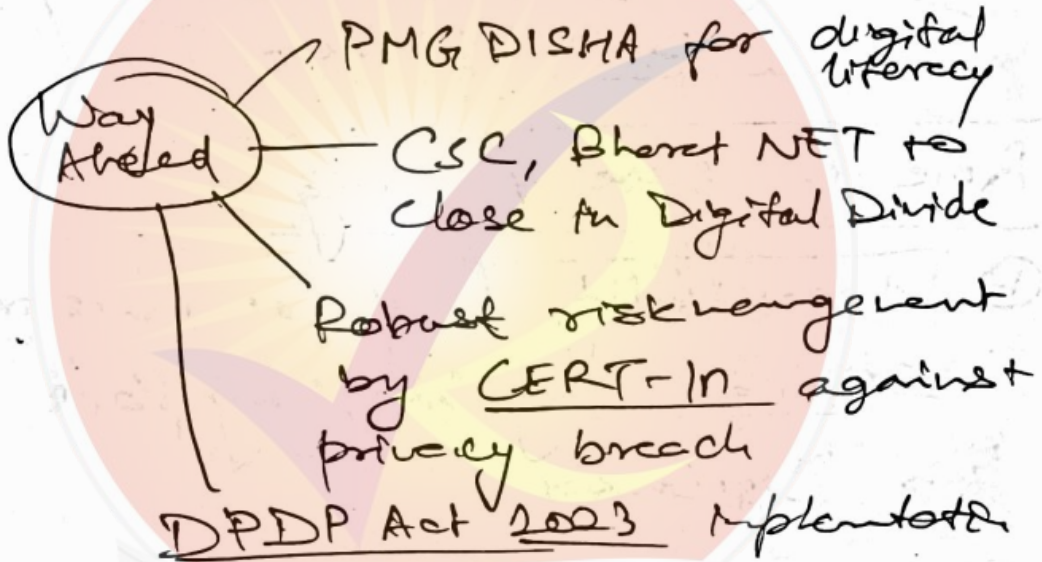 Way
Ahead
PMG DISHA for digital
literacy
CSC, Bharat NET to
close in Digital Divide
Robust risk management
by CERT-In against
privacy breach
DPDP Act 2023 implantation